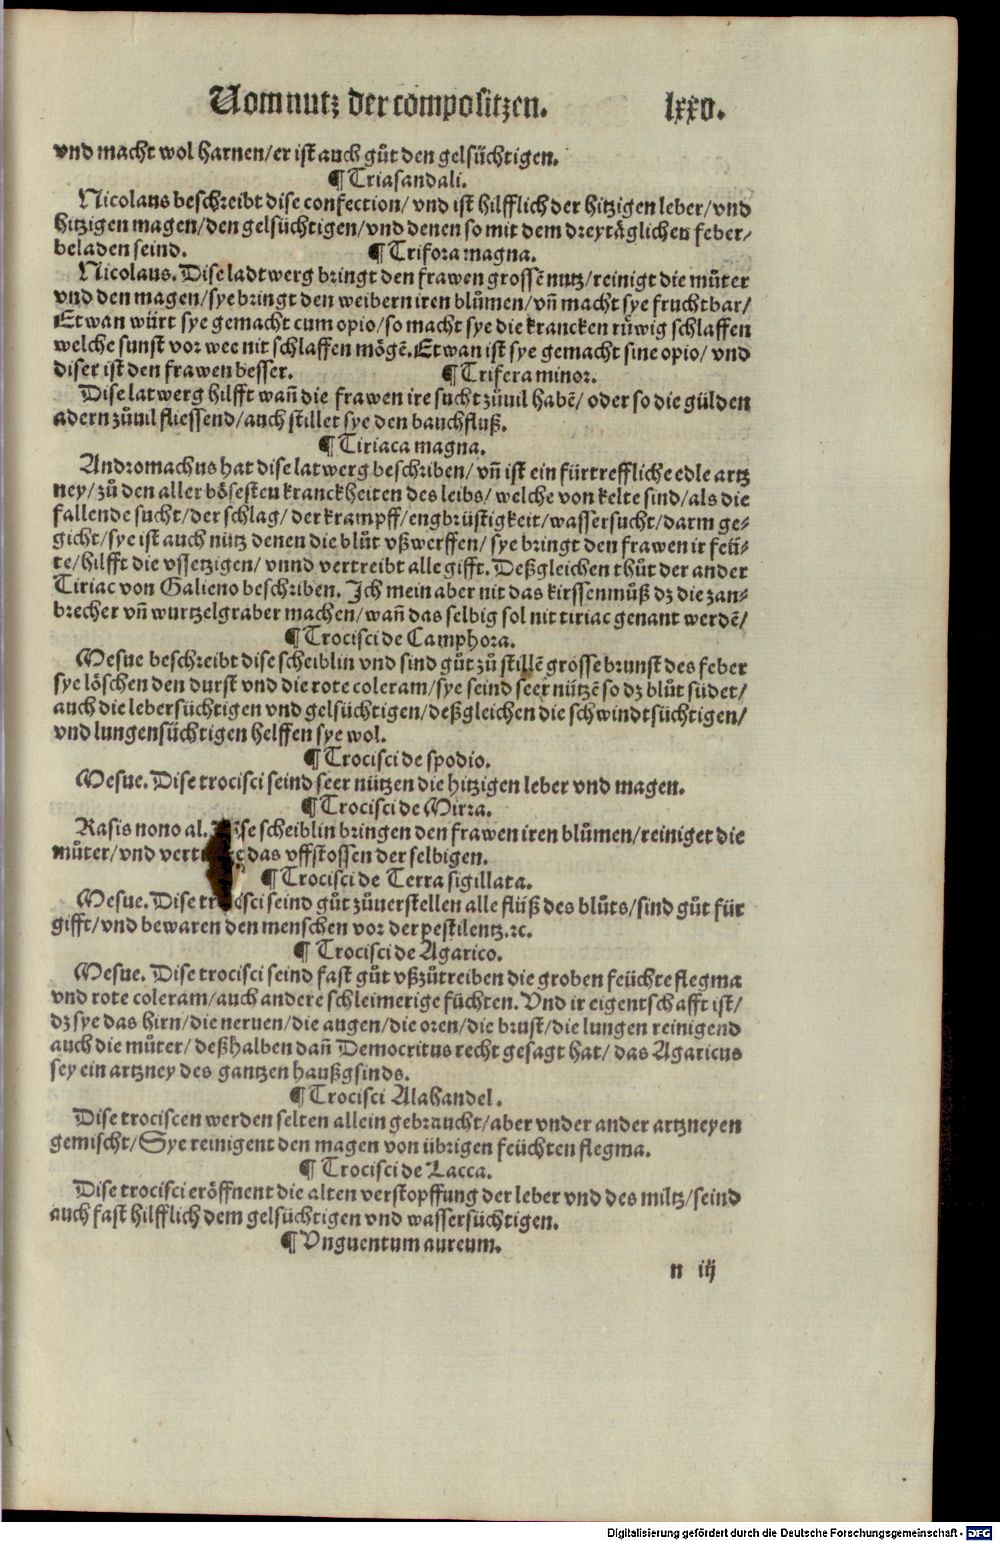 Vom nutz der compositzen. lxxv.
vnd macht wol harnen/er ist auch gůt den gelsüchtigen.
¶ Triasandali.
Nicolaus beschreibt dise confection/ vnd ist hilfflich der hitzigen leber/vnd
hitzigen magen/den gelsüchtigen/vnd denen so mit dem dreytäglichen feber/
beladen seind. ¶ Trifora magna.
Nicolaus. Dise ladtwerg bringt den frawen grossẽ nutz/reinigt die můter
vnd den magen/sye bringt den weibern iren blůmen/vñ macht sye fruchtbar/
Etwan würt sye gemacht cum opio/so macht sye die krancken růwig schlaffen
welche sunst vor wee nit schlaffen mögẽ. Etwan ist sye gemacht sine opio/ vnd
diser ist den frawen besser. ¶ Trifera minor.
Dise latwerg hilfft wañ die frawen ire sucht zůuil habẽ/ oder so die gülden
adern zůuil fliessend/auch stillet sye den bauchfluß.
¶ Tiriaca magna.
Andromachus hat dise latwerg beschriben/ vñ ist ein fürtreffliche edle artz
ney/zů den aller bösesten kranckheiten des leibs/ welche von kelte sind/als die
fallende sucht/der schlag/ der krampff/engbrüstigkeit/wassersucht/darm ge⸗
gicht/sye ist auch nütz denen die blůt vßwerffen/ sye bringt den frawen ir feü⸗
te/hilfft die vssetzigen/ vnnd vertreibt alle gifft. Deßgleichen thůt der ander
Tiriac von Galieno beschriben. Ich mein aber nit das kirssenmůß dz die zan⸗
brecher vñ wurtzelgraber machen/wañ das selbig sol nit tiriac genant werdẽ/
¶ Trocisci de Camphora.
Mesue beschreibt dise scheiblin vnd sind gůt zů stillẽ grosse brunst des feber
sye löschen den durst vnd die rote coleram/sye seind seer nützẽ so dz blůt südet/
auch die lebersüchtigen vnd gelsüchtigen/deßgleichen die schwindtsüchtigen/
vnd lungensüchtigen helffen sye wol.
¶ Trocisci de spodio.
Mesue. Dise trocisci seind seer nützen die hitzigen leber vnd magen.
¶ Trocisci de Mirra.
Rasis nono al. se scheiblin bringen den frawen iren blůmen/reiniget die
můter/vnd das vffstossen der selbigen.
¶ Trocisci de Terra sigillata.
Mesue. Dise trocisci seind gůt zůuerstellen alle flüß des blůts/sind gůt für
gifft/vnd bewaren den menschen vor der pestilentz.⁊c.
¶ Trocisci de Agarico.
Mesue. Dise trocisci seind fast gůt vßzůtreiben die groben feüchte flegma
vnd rote coleram/auch andere schleimerige füchten. Vnd ir eigentschafft ist/
dz sye das hirn/die neruen/die augen/die oren/die brust/die lungen reinigend
auch die můter/ deßhalben dañ Democritus recht gesagt hat/ das Agaricus
sey ein artzney des gantzen haußgsinds.
¶ Trocisci Alahandel.
Dise trociscen werden selten allein gebraucht/aber vnder ander artzneyen
gemischt/Sye reinigent den magen von übrigen feüchten flegma.
¶ Trocisci de Lacca.
Dise trocisci eröffnent die alten verstopffung der leber vnd des miltz/seind
auch fast hilfflich dem gelsüchtigen vnd wassersüchtigen.
¶ Vnguentum aureum.
n iij
Digitalisierung gefördert durch die Deutsche Forschungsgemeinschaft - DFG